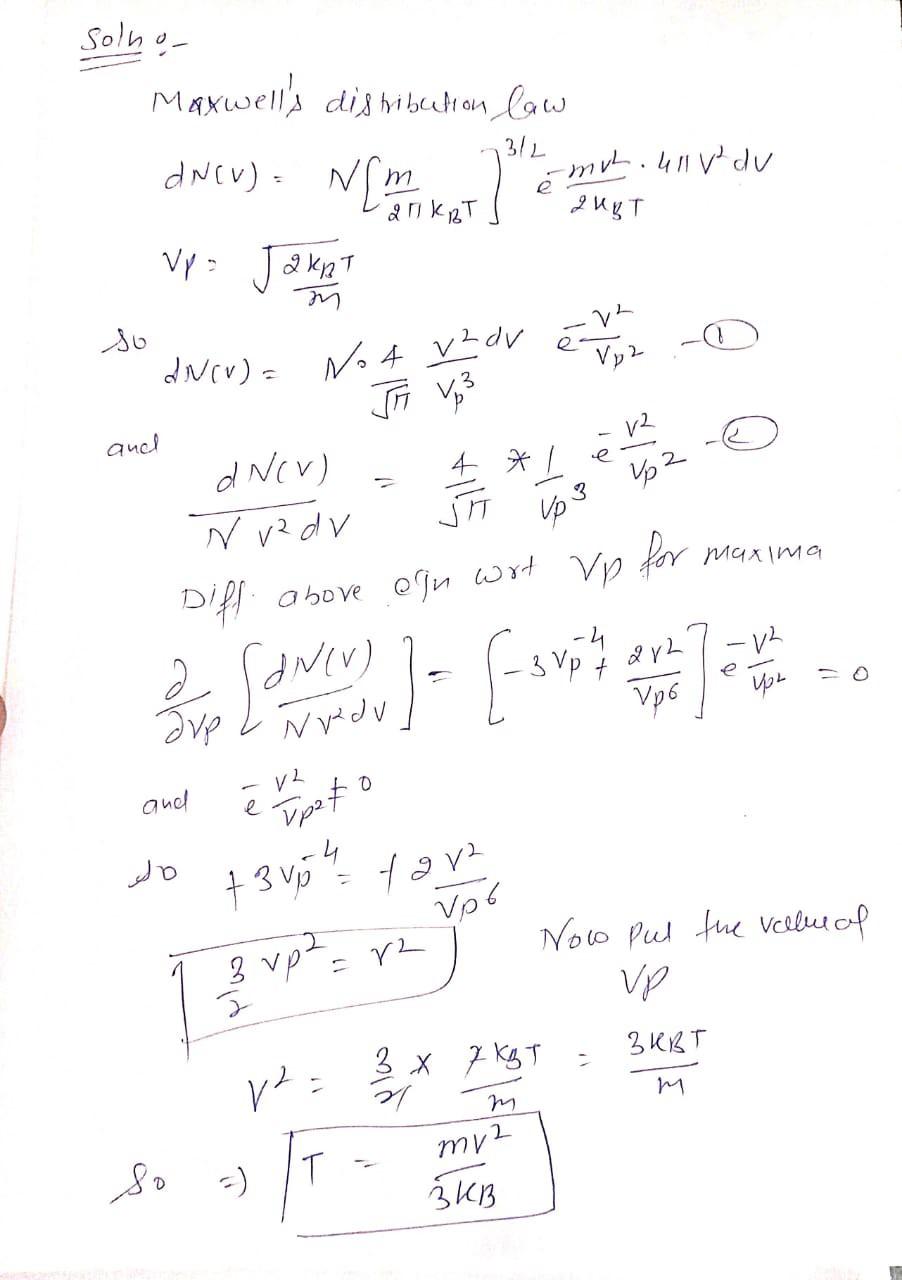 Soln :-
Maxwell's distribution law
dN(v) = N[m/2πK_BT]^3/2 e^-mv²/2K_BT . 4πv²dv
Vp = √2k_BT/m
so
dN(v) = N. 4/√π v²dv/Vp³ e^-v²/Vp² -①
and
dN(v)/N v²dv = 4/√π * 1/Vp³ e^-v²/Vp² -②
Diff. above eqn wrt Vp for maxima
∂/∂Vp [dN(v)/Nv²dv] = [-3Vp^-4 + 2v²/Vp⁶] e^-v²/Vp² = 0
and e^-v²/Vp² ≠ 0
so +3Vp^-4 = +2v²/Vp⁶
3/2 Vp² = v²
Now put the value of
Vp
V² = 3/2 x 2K_BT/m = 3K_BT/m
So => T = mv²/3K_B